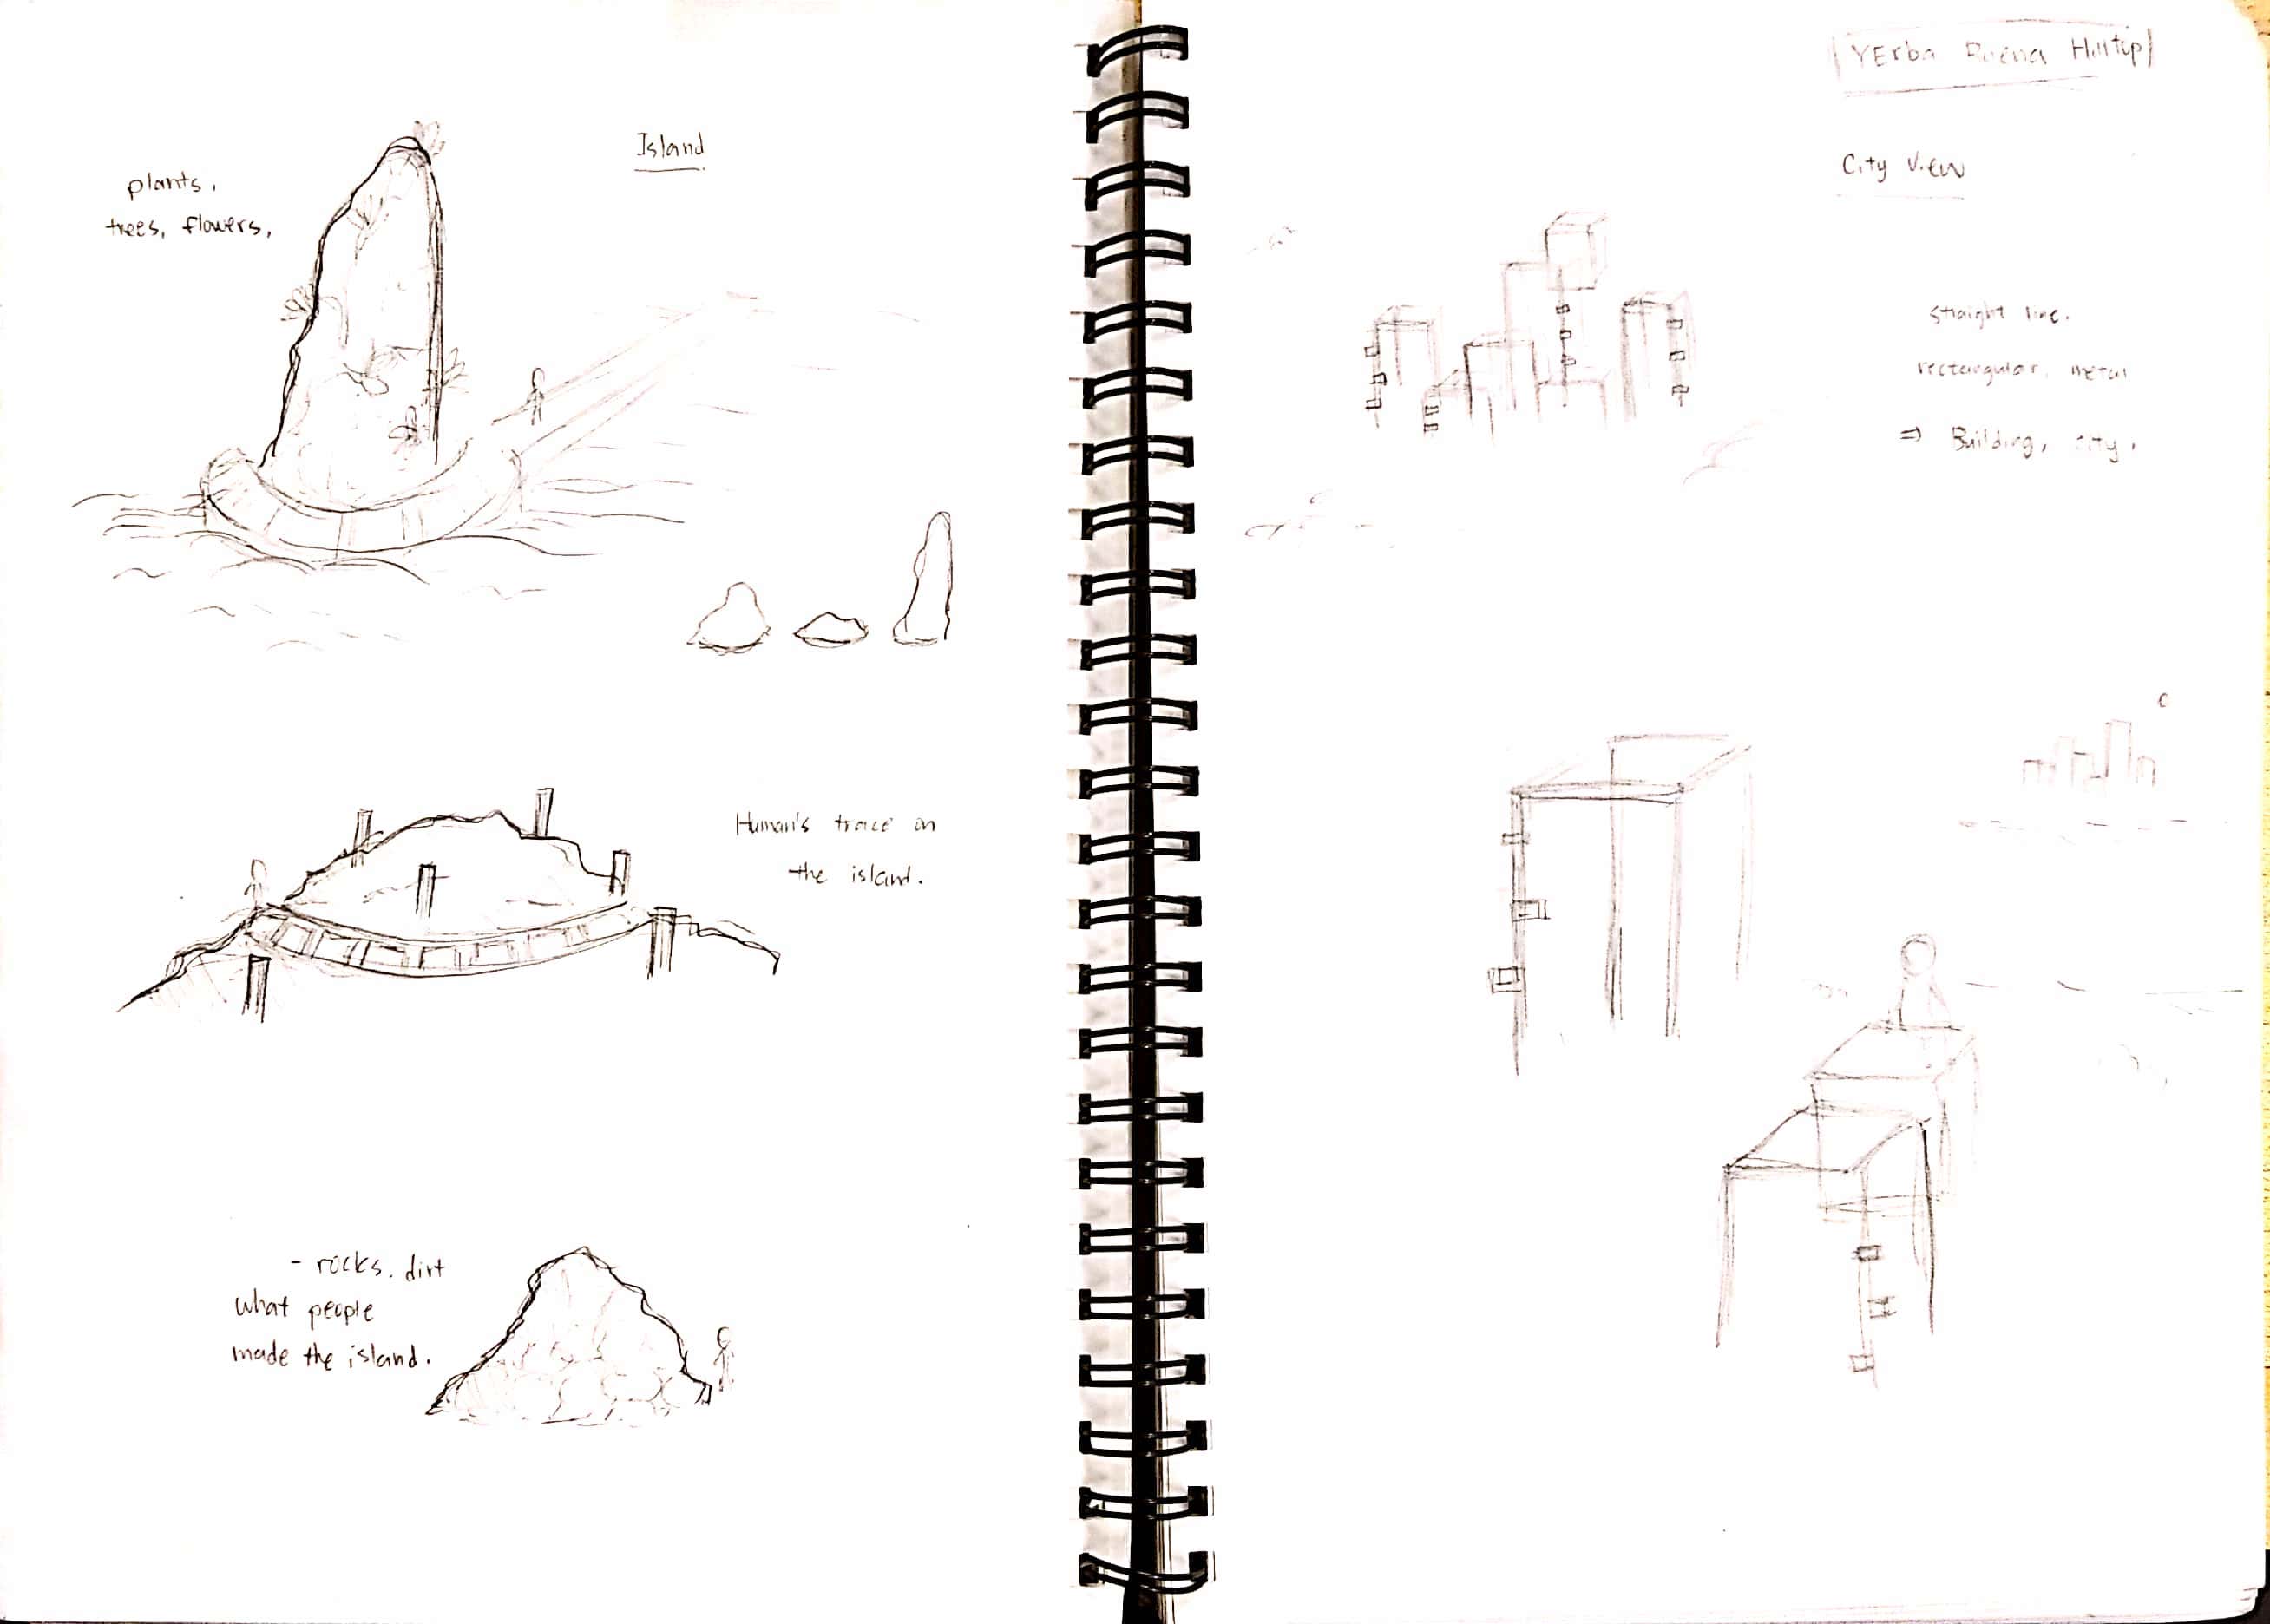 Island
plants,
trees, flowers,
Human's trace on
the island.
- rocks. dirt
what people
made the island.
YErba Buena Hilltip
City View
straight line.
rectangular, metal
⇒ Building, city.